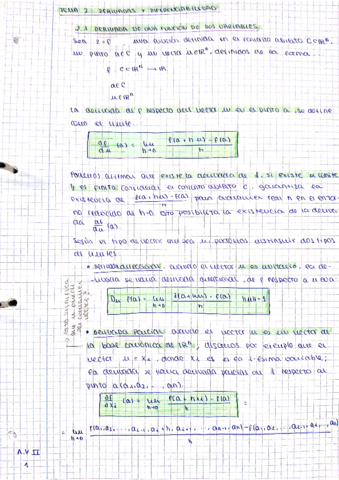 TEMA 2: DERIVADAS Y DIFERENCIABILIDAD
2.1 DERIVADA DE UNA FUNCIÓN DE DOS VARIABLES
Sea una función definida en el conjunto abierto C⊂ℝⁿ,
un punto a∈C y un vector u∈ℝⁿ, definidos de la forma...
f C⊂ℝⁿ → ℝ
a∈C
u∈ℝⁿ
La derivada de f respecto del vector u en el punto a, se define
como el límite...
∂f/∂u (a) = lim h→0 f(a+hu) - f(a) / h
Podemos afirmar que existe la derivada de f, si existe el límite
y es finito
existencia de f(a+hu) - f(a) / h para cualquier real h en el entorno
reducido de h=0 esto posibilita la existencia de la deriva
da ∂f/∂u (a).
Según el tipo de vector que sea u, podemos distinguir dos tipos
de límites
• Derivada direccional: cuando el vector u es unitario, la de-
rivada se llama derivada direccional, de f respecto a u en a
Du f(a) = lim h→0 f(a+hu) - f(a) / h ‖u‖=1
• Derivada parcial: cuando el vector u es un vector de
la base canónica de ℝⁿ, digamos por ejemplo que el
vector u = xi, donde xi es la i-ésima variable;
la derivada se llama derivada parcial de f respecto al
punto a(a1,a2,..., an).
∂f/∂xi (a) = lim h→0 f(a+hxi) - f(a) / h =
= lim h→0 f(a1,a2,..., ai-1, ai+h, ai+1,..., an-1, an) - f(a1,a2,..., ai-1,..., an) / h
A.V II
1